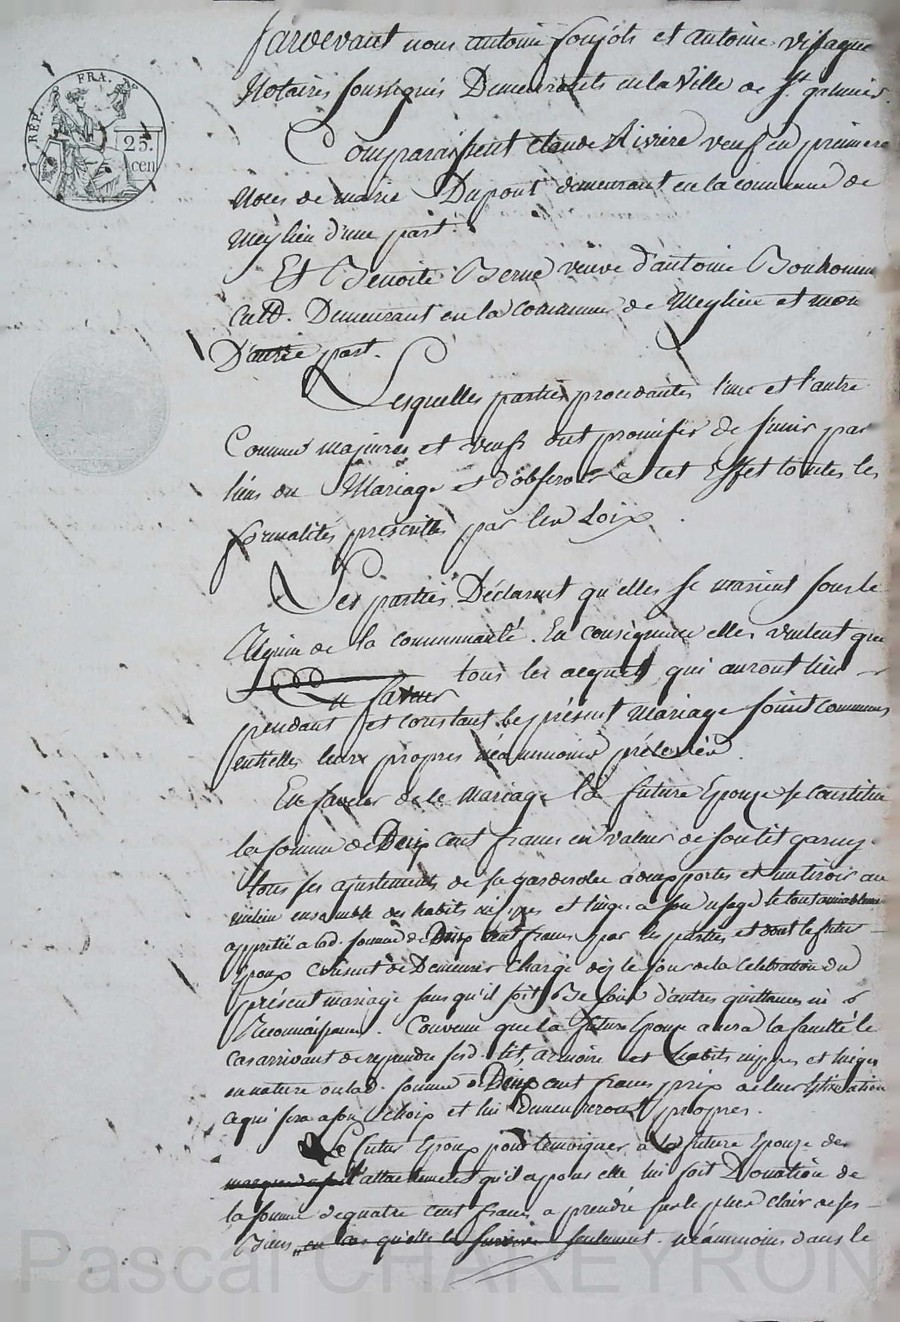 REP. FRA.
25.
cen
Pardevant nous antoine et antoine
Notaires soussignés Demeurants en la Ville de St galmier.
Comparaissent claude Rivière veuf en premiere
Noces de marie Dupont demeurant en la commune de
Meylieu d'une part.
Et Benoite Berne veuve d'antoine Bonhomme
Demeurant en la commune de Meylieu et mon
D'autre part.
Lesquelles parties procedantes l'une et l'autre
Comme majeures et veufs ont promis de s'unir par
liens du Mariage et d'observer a cet Effet toutes les
formalités prescrittes par les Loix.
Les parties Déclarent qu'elles se marient sous le
Régime de la communauté. En conséquence elles veulent que
tous les acquets qui auront lieu
pendant et constant le présent mariage soient communs
entr'elles leurs propres néanmoins prélevés.
En faveur de ce mariage la future Epouse se constitue
la somme de Deux cent francs en valeur de son lit garny
tous ses ajustements de sa garderobe a deux portes et un tiroir au
milieu ensemble des habits nippes et linges a son usage le tout amiablement
appretié a lad. somme de Deux cent francs par les parties et dont le futur
Epoux consent de Demeurer Chargé dès le jour de la Célébration du
présent mariage sans qu'il soit Besoin d'autres quittances ni
Reconnaissances. Convenu que la future Epouse aura la faculté le
cas arrivant de reprendre sesd. lit, armoire et habits nippes et linges
en nature ou lad. somme de Deux cent francs prix de leur Estimation
ce qui sera a son choix et lui demeureront propres.
Le futur Epoux pour temoigner a la future Epouse de
l'attachement qu'il a pour elle lui fait Donation de
la somme de quatre cent francs a prendre sur le plus clair de ses
Biens en cas qu'elle le survive seulement. néanmoins dans le
Pascal CHAREYRON